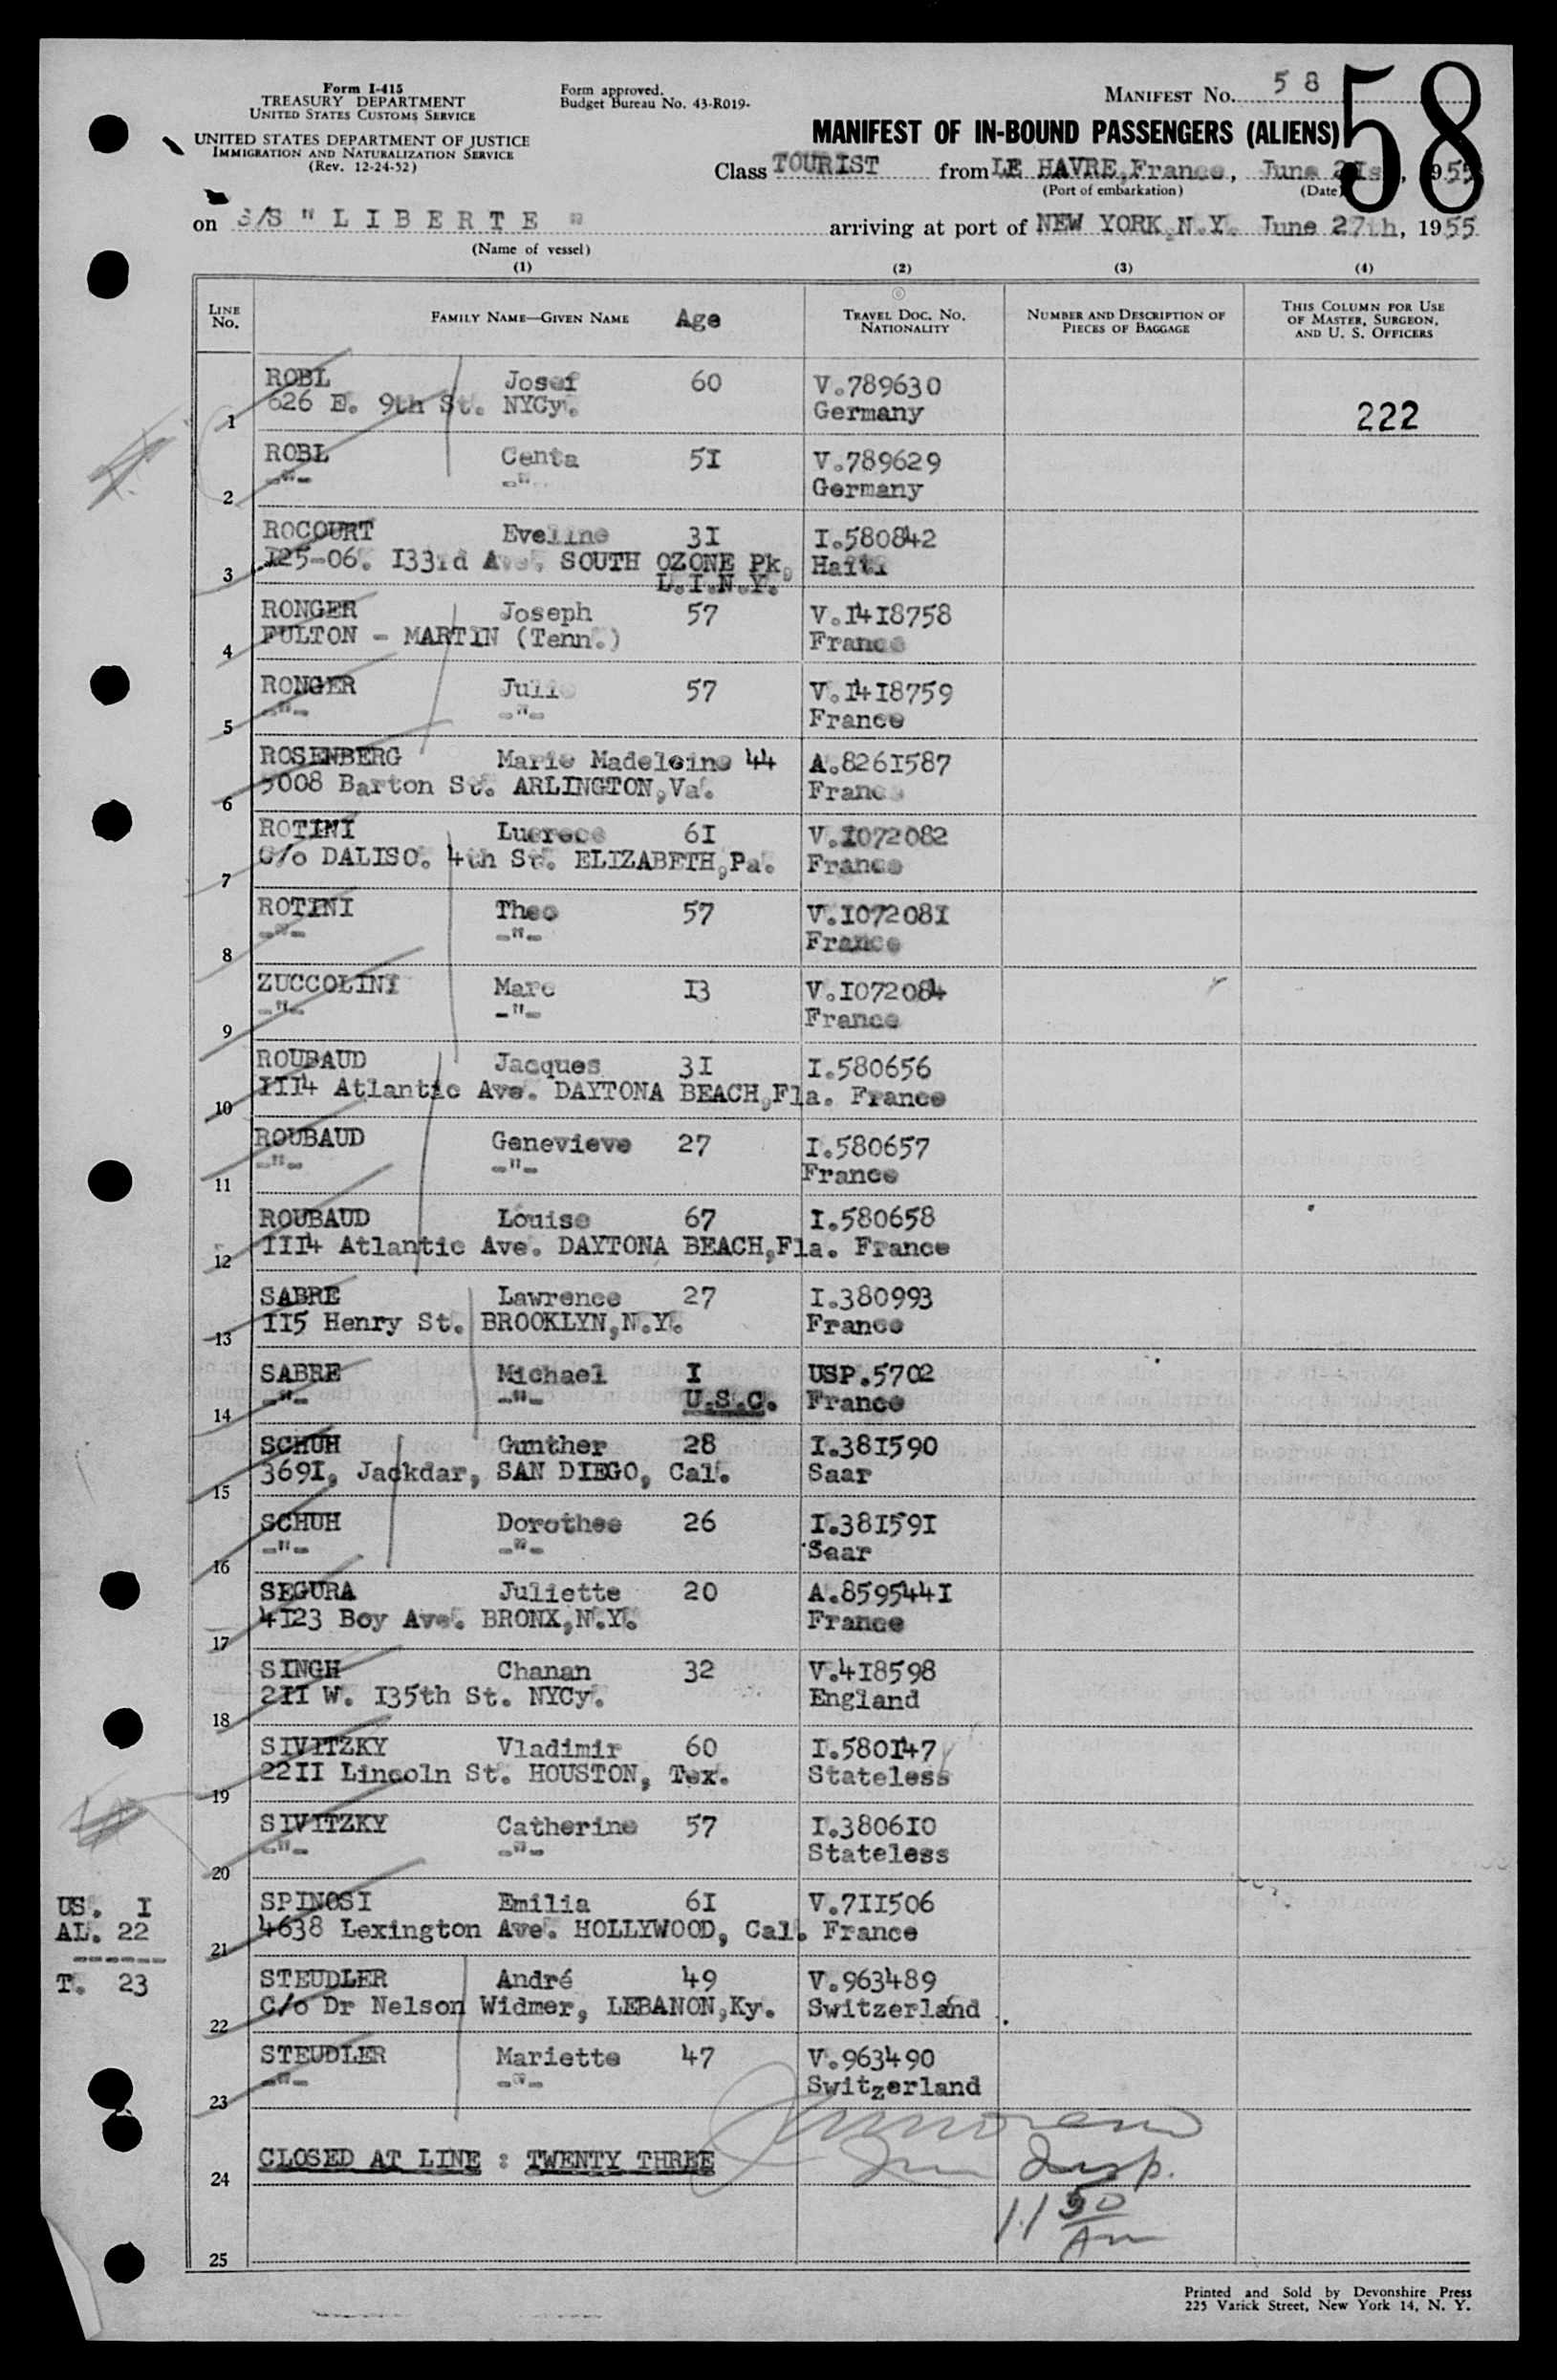 Form I-415
TREASURY DEPARTMENT
UNITED STATES CUSTOMS SERVICE
UNITED STATES DEPARTMENT OF JUSTICE
IMMIGRATION AND NATURALIZATION SERVICE
(Rev. 12-24-52)
Form approved.
Budget Bureau No. 43-R019-
MANIFEST No. 58
58
MANIFEST OF IN-BOUND PASSENGERS (ALIENS)
Class TOURIST from LE HAVRE, France, June 2Ist, 1955
(Port of embarkation) (Date)
on S/S " L I B E R T E " arriving at port of NEW YORK, N.Y. June 27th, 1955
(Name of vessel)
(1) (2) (3) (4)
LINE No. FAMILY NAME—GIVEN NAME Age TRAVEL DOC. NO. NATIONALITY NUMBER AND DESCRIPTION OF PIECES OF BAGGAGE THIS COLUMN FOR USE OF MASTER, SURGEON, AND U. S. OFFICERS
ROBL Josef 60 V.789630
1 626 E. 9th St. NYCy. Germany 222
ROBL Centa 5I V.789629
2 -"- -"- Germany
ROCOURT Eveline 3I I.580842
3 I25-06. I33rd Ave. SOUTH OZONE Pk, Haiti
L.I.N.Y.
RONGER Joseph 57 V.I4I8758
4 FULTON - MARTIN (Tenn.) France
RONGER Julie 57 V.I4I8759
5 -"- -"- France
ROSENBERG Marie Madeleine 44 A.826I587
6 5008 Barton St. ARLINGTON, Va. France
ROTINI Lucrece 6I V.I072082
7 C/o DALISO. 4th St. ELIZABETH, Pa. France
ROTINI Theo 57 V.I07208I
8 -"- -"- France
ZUCCOLINI Marc I3 V.I072084
9 -"- -"- France
ROUBAUD Jacques 3I I.580656
10 III4 Atlantic Ave. DAYTONA BEACH, Fla. France
ROUBAUD Genevieve 27 I.580657
11 -"- -"- France
ROUBAUD Louise 67 I.580658
12 III4 Atlantic Ave. DAYTONA BEACH, Fla. France
SABRE Lawrence 27 I.380993
13 II5 Henry St. BROOKLYN, N.Y. France
SABRE Michael I USP.5702
14 -"- -"- U.S.C. France
SCHUH Gunther 28 I.38I590
15 369I, Jackdar, SAN DIEGO, Cal. Saar
SCHUH Dorothee 26 I.38I59I
16 -"- -"- Saar
SEGURA Juliette 20 A.859544I
17 4I23 Boy Ave. BRONX, N.Y. France
SINGH Chanan 32 V.4I8598
18 2II W. I35th St. NYCy. England
SIVITZKY Vladimir 60 I.580I47
19 22II Lincoln St. HOUSTON, Tex. Stateless
SIVITZKY Catherine 57 I.3806I0
20 -"- -"- Stateless
SPINOSI Emilia 6I V.7II506
21 4638 Lexington Ave. HOLLYWOOD, Cal. France
US. I
AL. 22
------
T. 23
STEUDLER André 49 V.963489
22 C/o Dr Nelson Widmer, LEBANON, Ky. Switzerland
STEUDLER Mariette 47 V.963490
23 -"- -"- Switzerland
24 CLOSED AT LINE : TWENTY THREE
Insp.
11 50
Am
25
Printed and Sold by Devonshire Press
225 Varick Street, New York 14, N. Y.